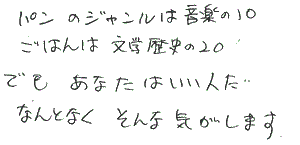 パンのジャンルは音楽の10
ごはんは文学歴史の20
でもあなたはいい人だ…
なんとなくそんな気がします.